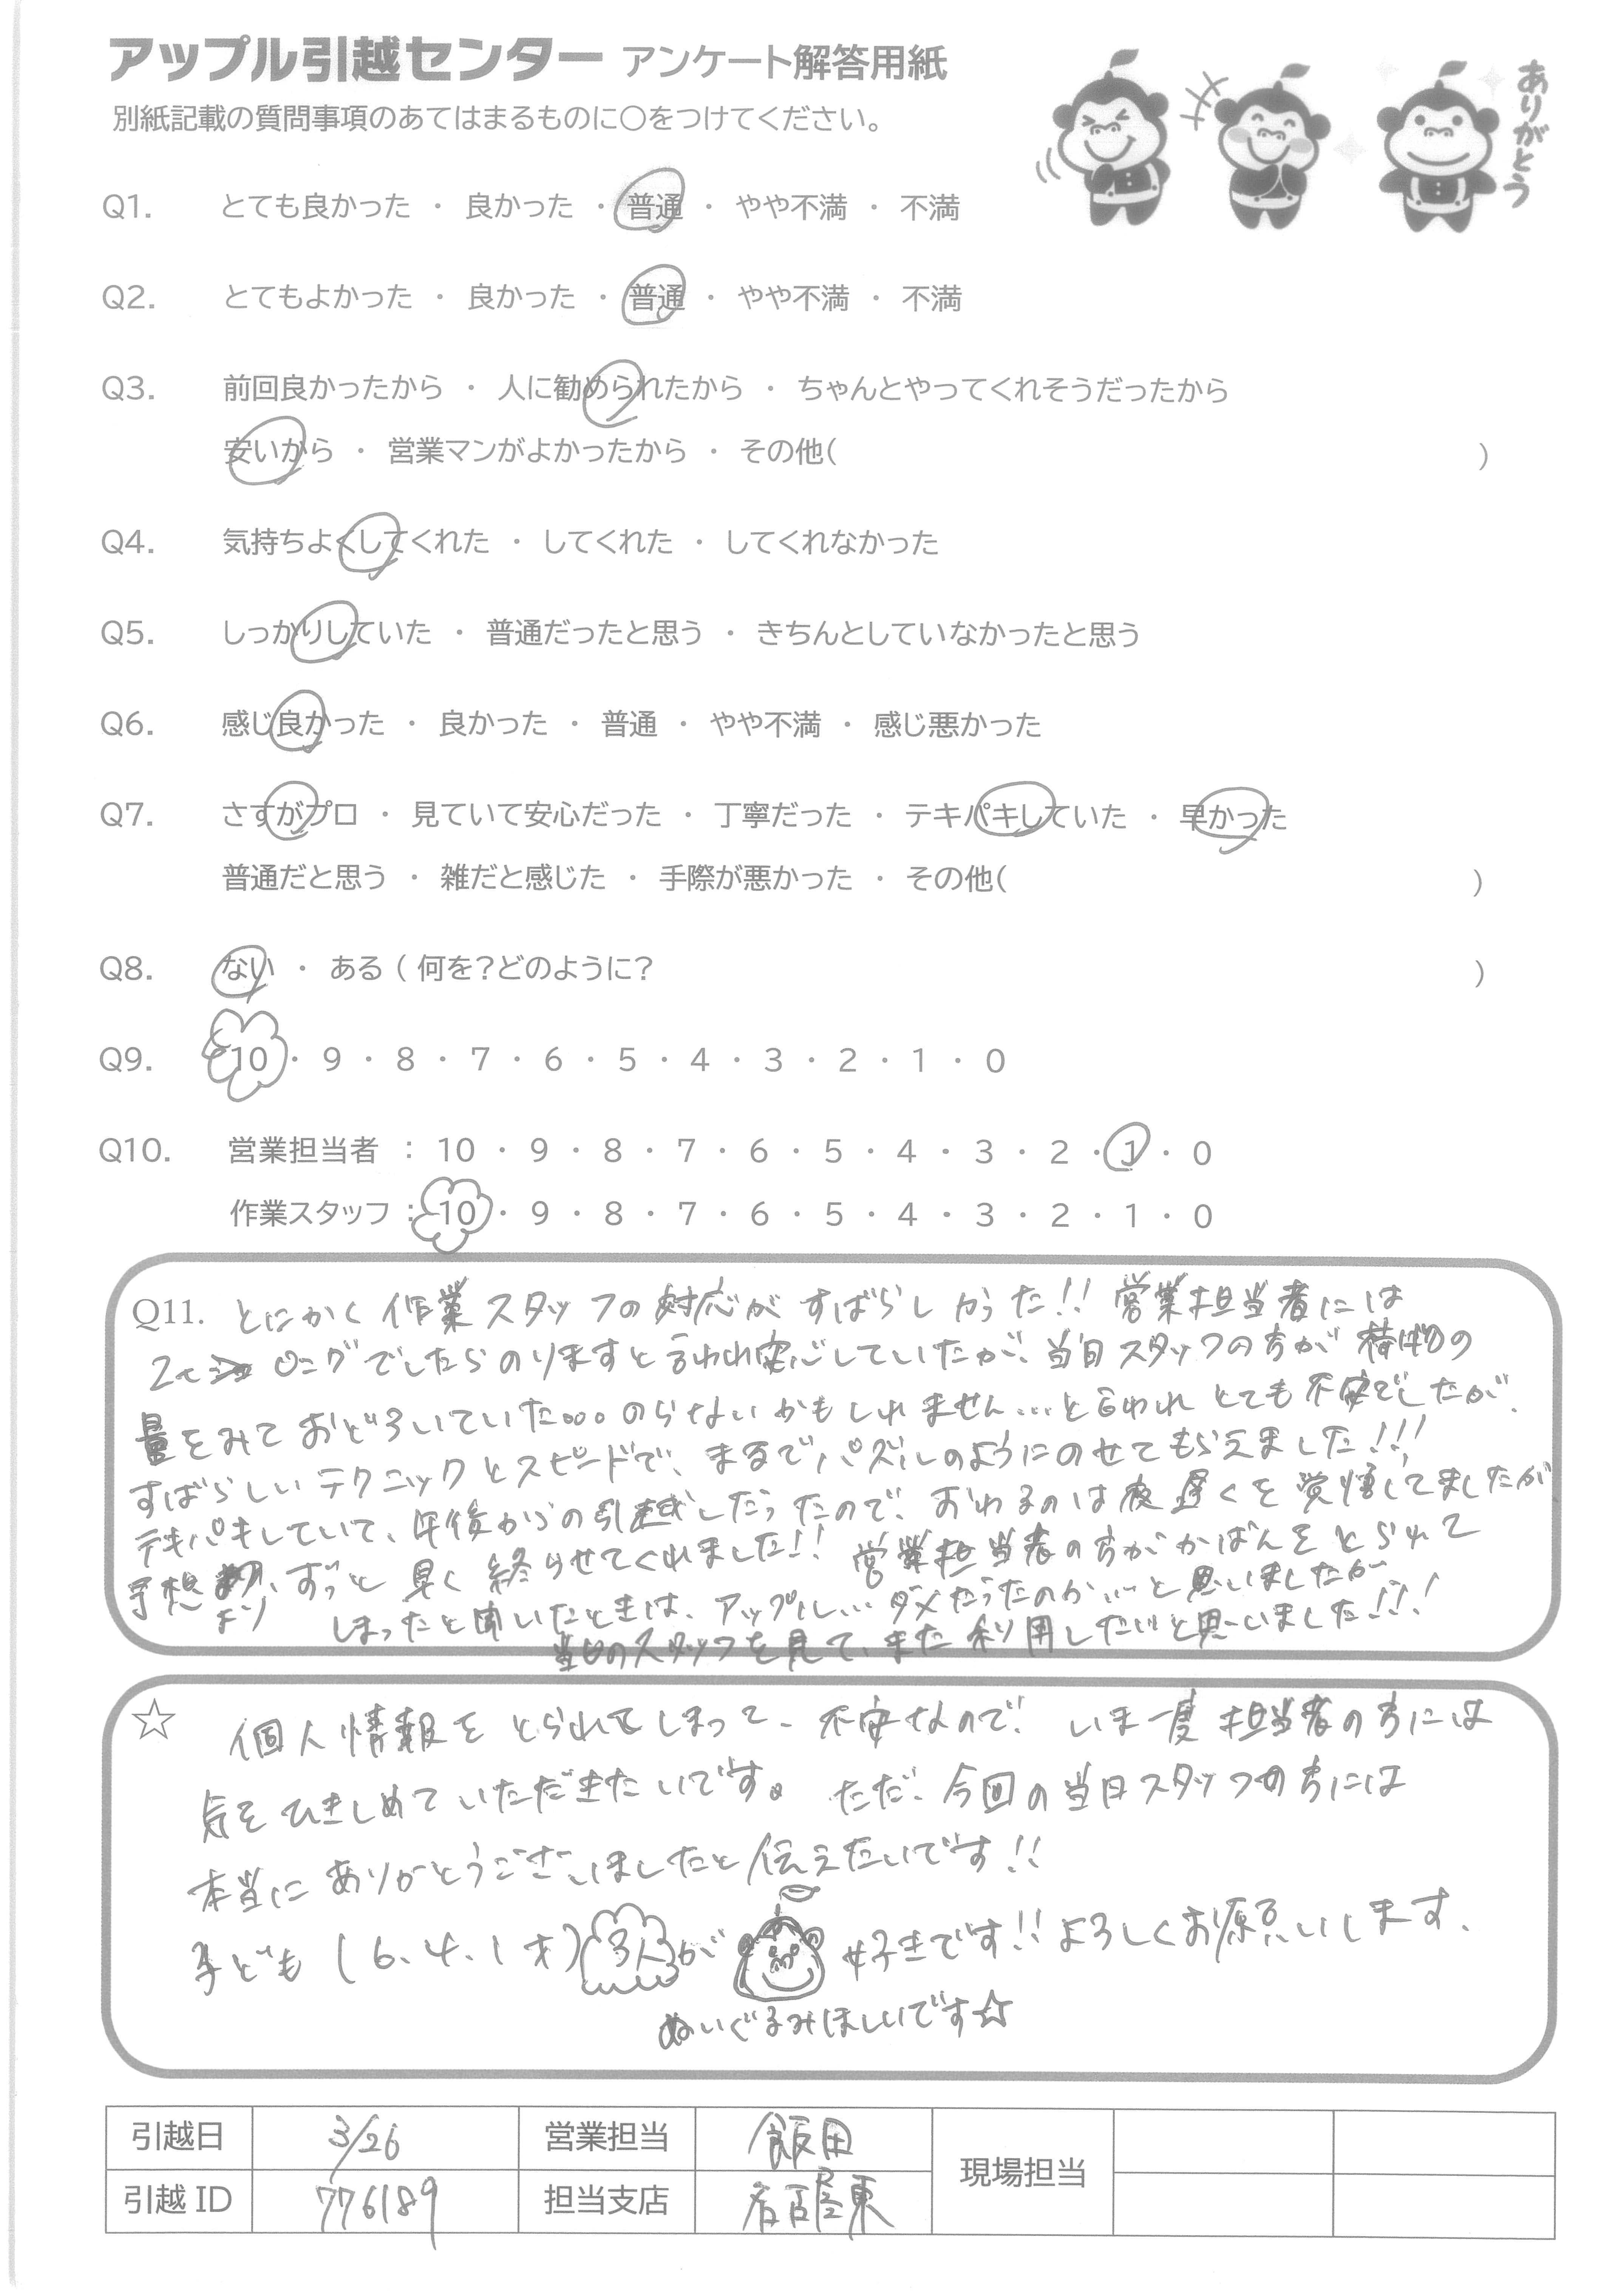 アップル引越センター アンケート解答用紙
別紙記載の質問事項のあてはまるものに〇をつけてください。
ありがとう
Q1. とても良かった ・ 良かった ・ 普通 ・ やや不満 ・ 不満
Q2. とてもよかった ・ 良かった ・ 普通 ・ やや不満 ・ 不満
Q3. 前回良かったから ・ 人に勧められたから ・ ちゃんとやってくれそうだったから
安いから ・ 営業マンがよかったから ・ その他( )
Q4. 気持ちよくしてくれた ・ してくれた ・ してくれなかった
Q5. しっかりしていた ・ 普通だったと思う ・ きちんとしていなかったと思う
Q6. 感じ良かった ・ 良かった ・ 普通 ・ やや不満 ・ 感じ悪かった
Q7. さすがプロ ・ 見ていて安心だった ・ 丁寧だった ・ テキパキしていた ・ 早かった
普通だと思う ・ 雑だと感じた ・ 手際が悪かった ・ その他( )
Q8. ない ・ ある ( 何を?どのように? )
Q9. 10 ・ 9 ・ 8 ・ 7 ・ 6 ・ 5 ・ 4 ・ 3 ・ 2 ・ 1 ・ 0
Q10. 営業担当者 : 10 ・ 9 ・ 8 ・ 7 ・ 6 ・ 5 ・ 4 ・ 3 ・ 2 ・ 1 ・ 0
作業スタッフ : 10 ・ 9 ・ 8 ・ 7 ・ 6 ・ 5 ・ 4 ・ 3 ・ 2 ・ 1 ・ 0
Q11. とにかく作業スタッフの対応がすばらしかった!! 営業担当者には
2t ロングでしたらのりますと言われ安心していたが、当日スタッフの方が荷物の
量をみておどろいていた。。。のらないかもしれません…と言われとても不安でしたが、
すばらしいテクニックとスピードで、まるでパズルのようにのせてもらえました!!!
テキパキしていて、午後からの引越しだったので、おわるのは夜遅くを覚悟してましたが
予想より、ずっと早く終らせてくれました!! 営業担当者の方がかばんをとられて
しまったと聞いたときは、アップル…ダメだったのか…と思いましたが
当日のスタッフを見て、また利用したいと思いました!!!
☆ 個人情報をとられてしまって、不安なので、いま一度担当者の方には
気をひきしめていただきたいです。ただ、今回の当日スタッフの方には
本当にありがとうございましたと伝えたいです!!
子ども (6、4、1才) 3人が 好きです!! よろしくお願いします。
ぬいぐるみほしいです☆
引越日 3/26 営業担当 飯田 現場担当
引越ID 776189 担当支店 名古屋東